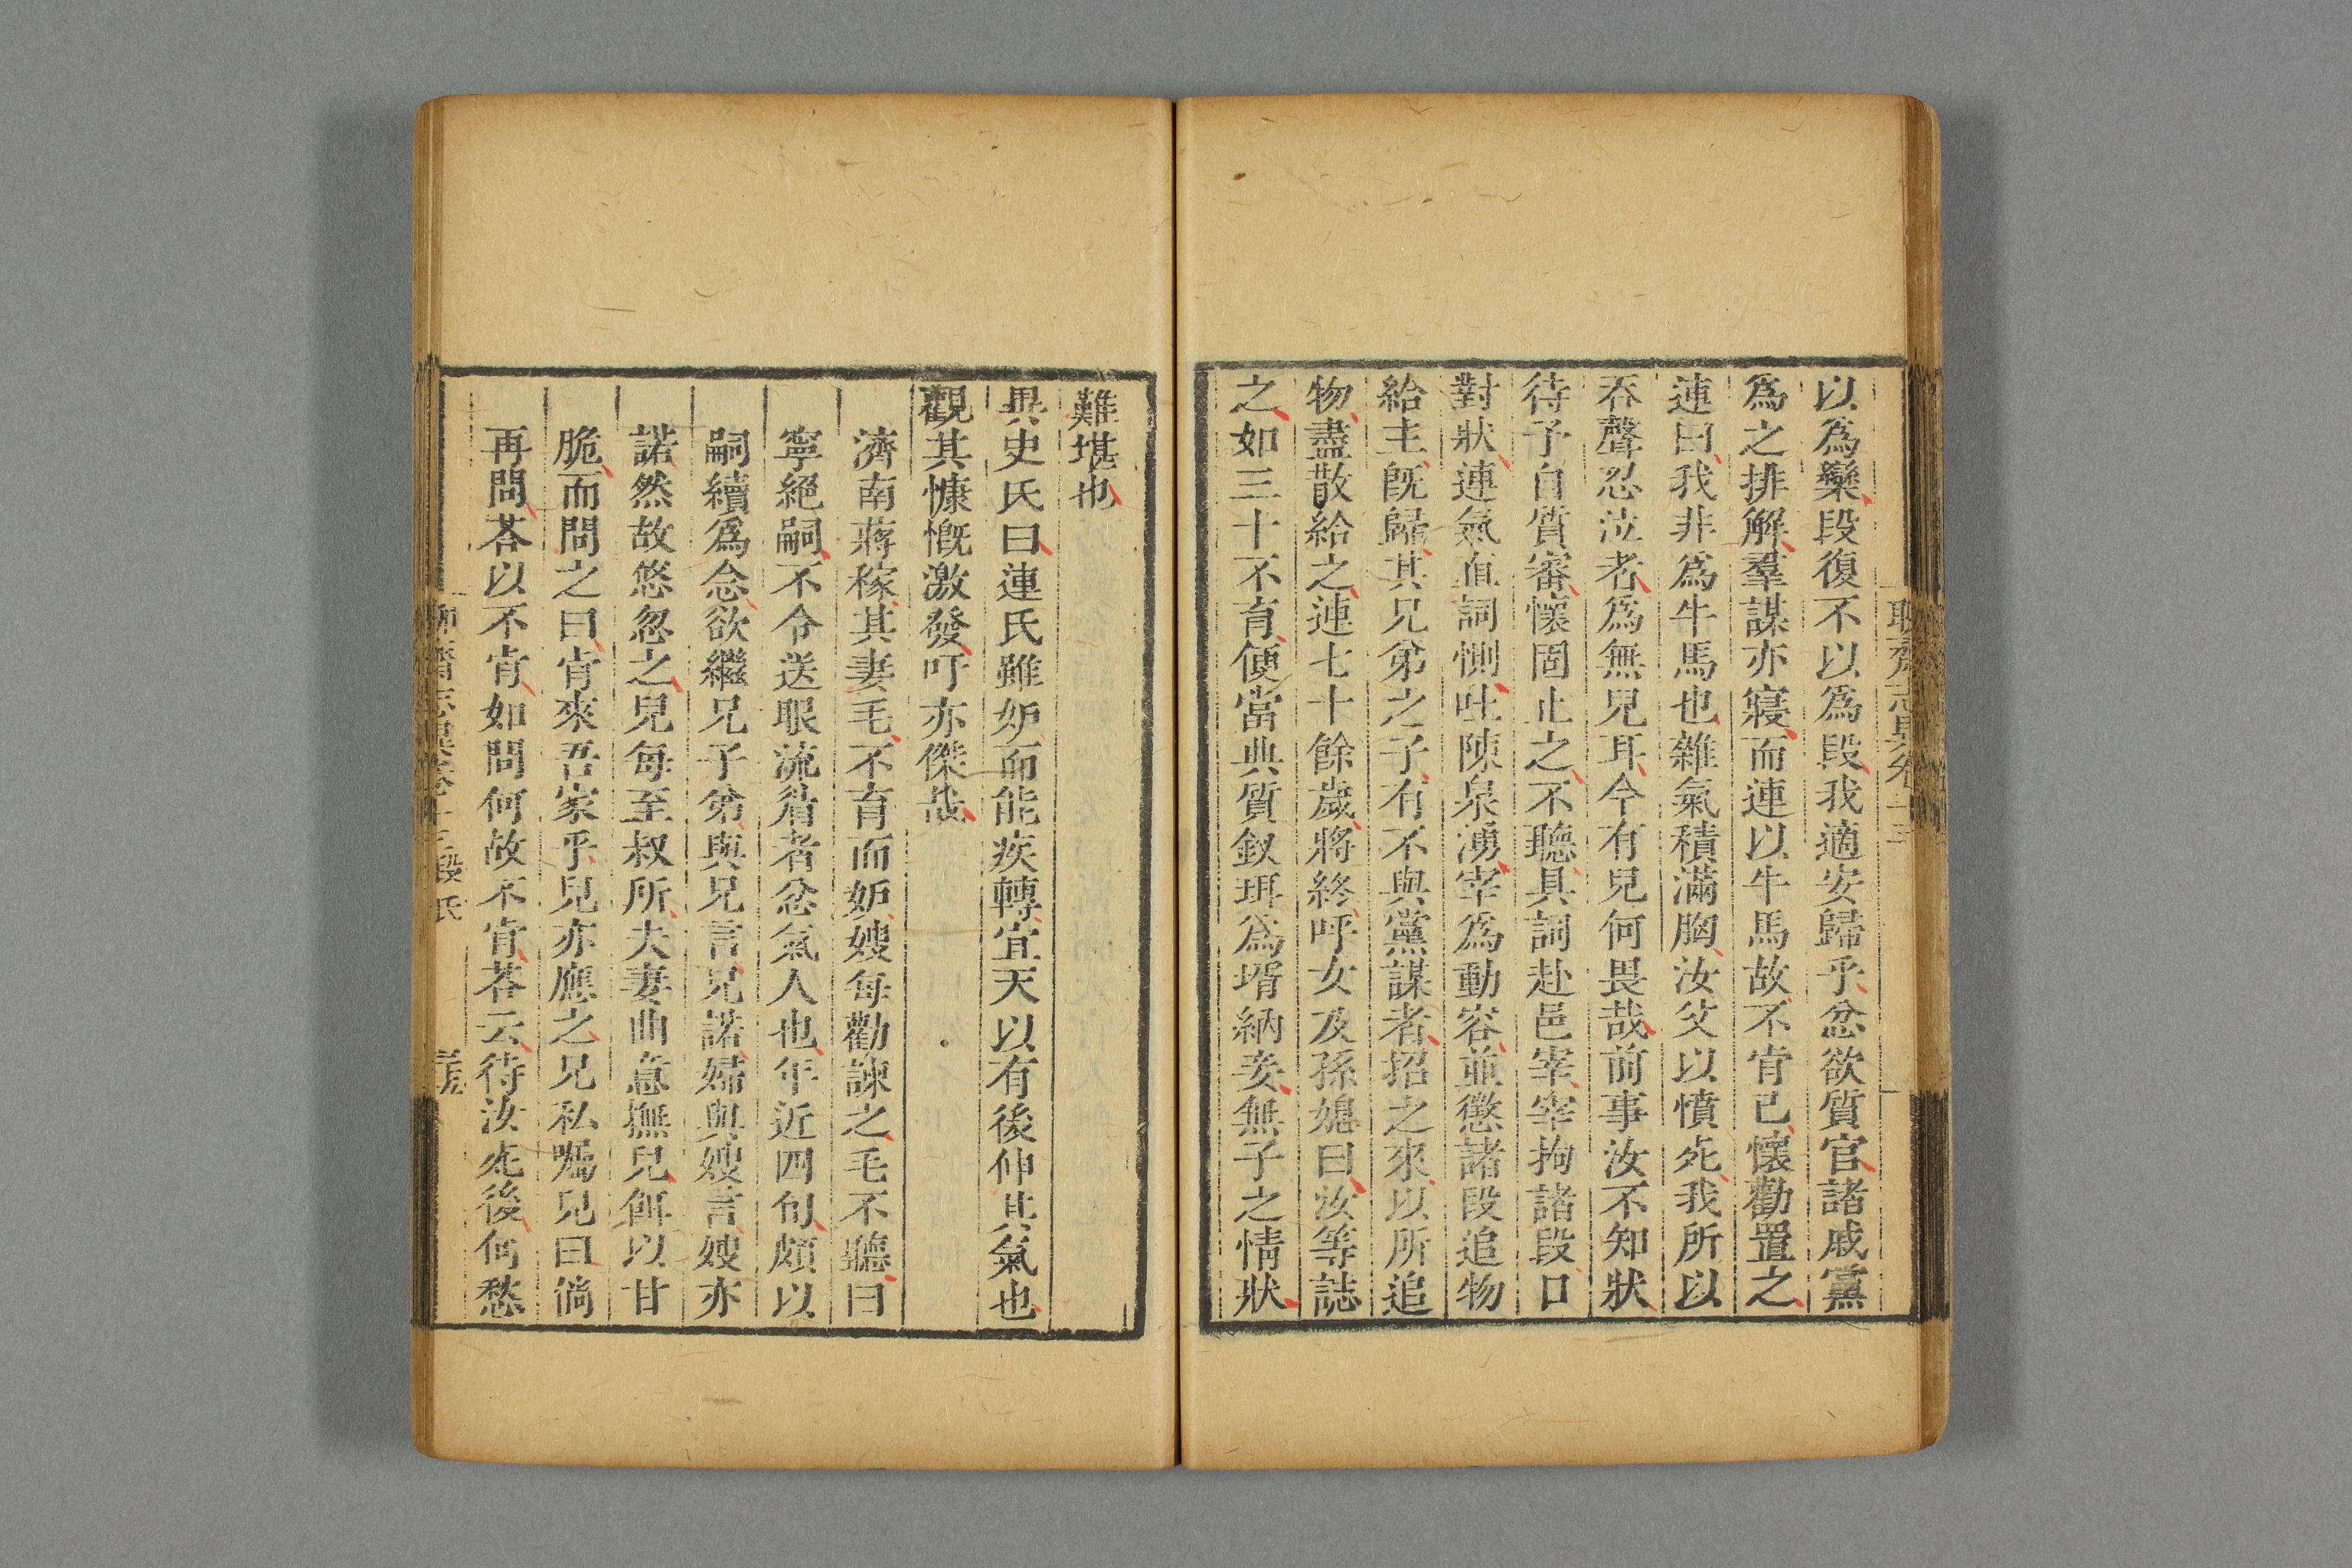 聊齋志異卷十三
以爲欒段復不以爲段我適安歸乎忿欲質官諸戚黨
爲之排解羣謀亦寢而連以牛馬故不肯已懷勸置之
連曰我非爲牛馬也雜氣積滿胸汝父以憤死我所以
吞聲忍泣者爲無兒耳今有兒何畏哉前事汝不知狀
待予自質審懷固止之不聽具詞赴邑宰宰拘諸段口
對狀連氣直詞惻吐陳泉湧宰爲動容並懲諸段追物
給主旣歸其兄弟之子有不與黨謀者招之來以所追
物盡散給之連七十餘歲將終呼女及孫媳曰汝等誌
之如三十不育便當典質釵珥爲壻納妾無子之情狀
難堪也
異史氏曰連氏雖妒而能疾轉宜天以有後伸其氣也
觀其慷慨激發吁亦傑哉
濟南蔣稼其妻毛不育而妒嫂每勸諫之毛不聽曰
寧絕嗣不令送眼流眉者忿氣人也年近四旬頗以
嗣續爲念欲繼兄子弟與兄言兄諾婦與嫂言嫂亦
諾然故悠忽之兒每至叔所夫妻曲意撫兒餌以甘
脆而問之曰肯來吾家乎兒亦應之兄私囑兒曰倘
再問荅以不肯如問何故不肯荅云待汝死後何愁
聊齋志異卷十三 段氏